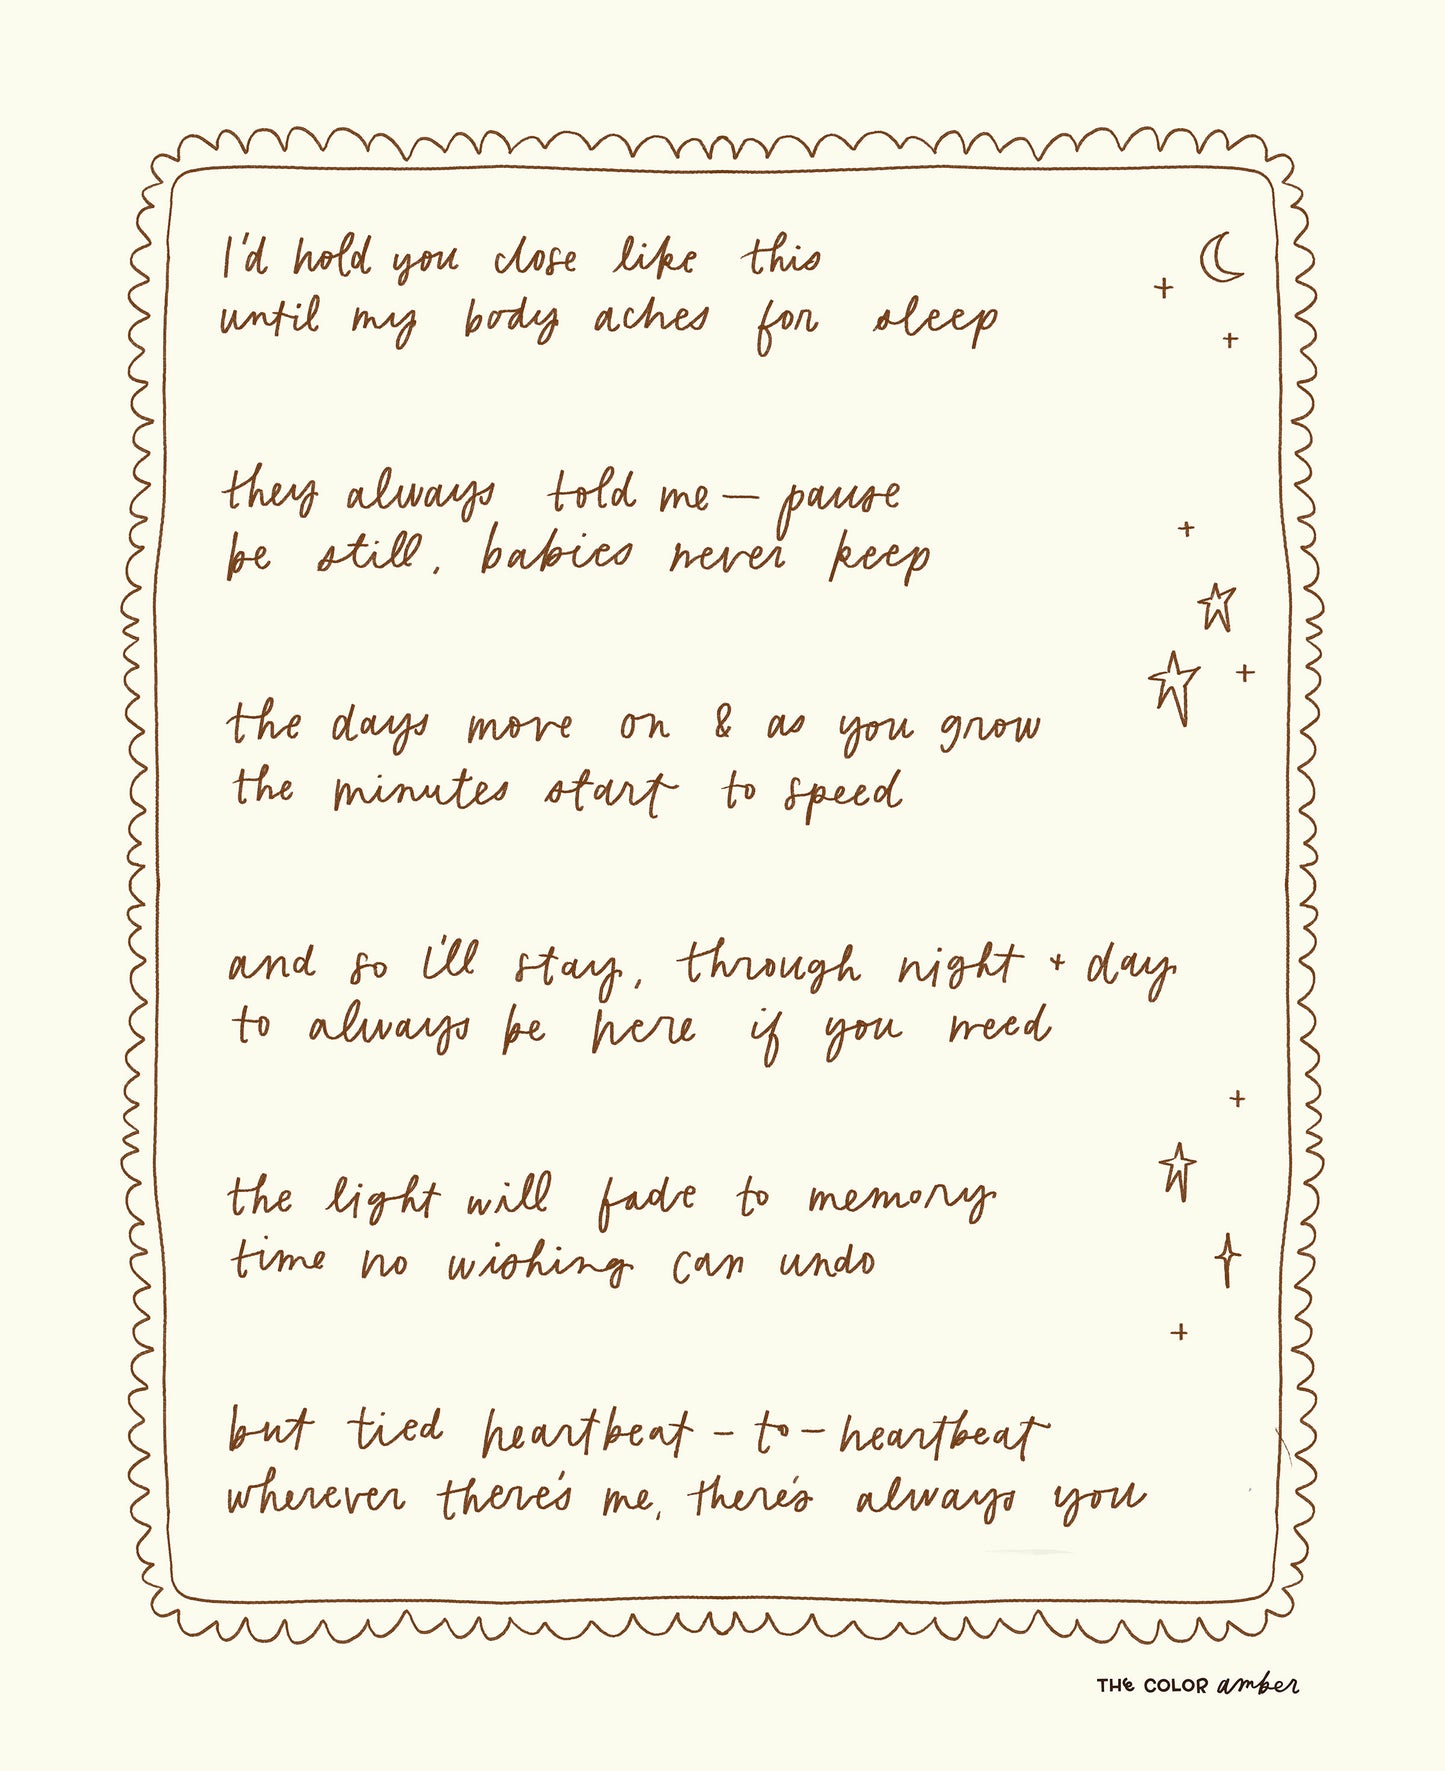 I'd hold you close like this
until my body aches for sleep
they always told me — pause
be still, babies never keep
the days move on & as you grow
the minutes start to speed
and so i'll stay, through night + day
to always be here if you need
the light will fade to memory
time no wishing can undo
but tied heartbeat - to - heartbeat
wherever there's me, there's always you
THE COLOR amber